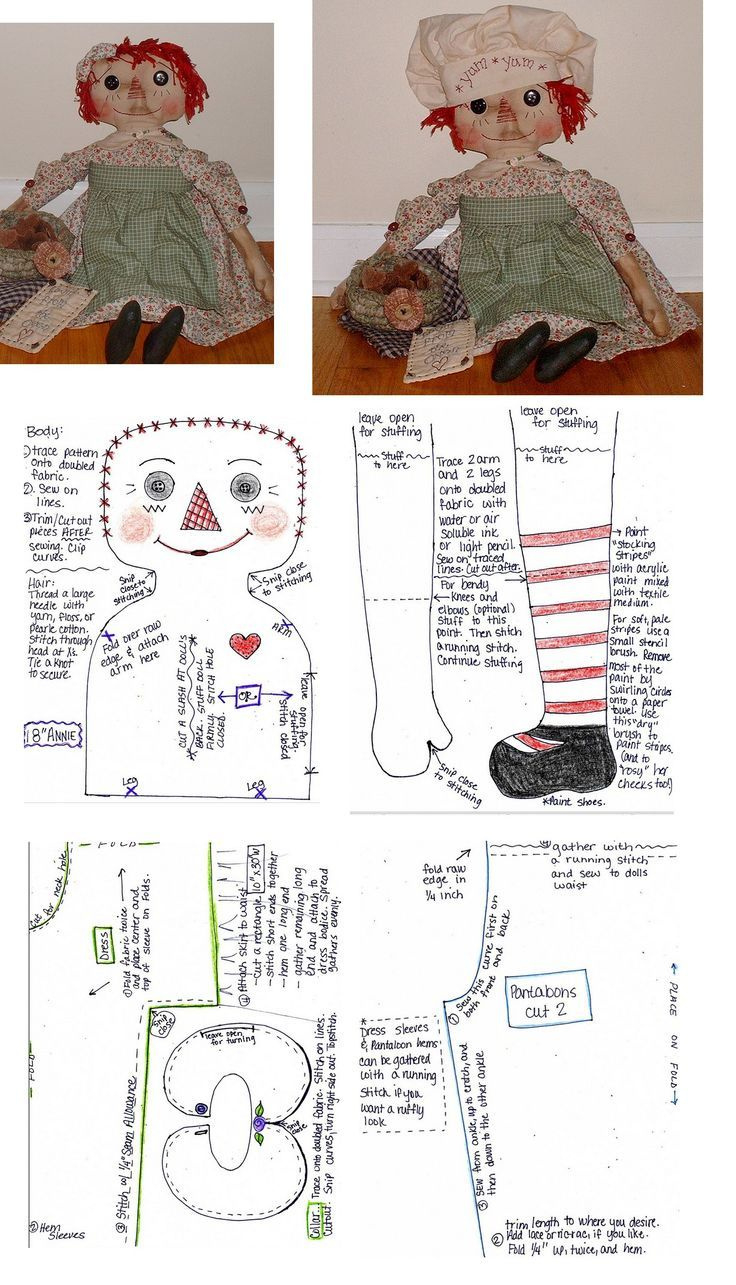 *yum * yum*
Drop the Cookie
Body:
1) trace pattern
onto doubled
fabric.
2). Sew on
lines.
3) Trim/cut out
pieces AFTER
sewing. Clip
curves.
Hair:
Thread a large
needle with
yarn, floss, or
pearle cotton.
Stitch through
head at Xs.
Tie a knot
to secure.
18" ANNIE
Snip
close to
stitching
Snip close
to stitching
Fold over raw
edge & attach
arm here
ARM
CUT A SLASH AT DOLL'S
BACK. STUFF DOLL
FIRMLY. STITCH HOLE
CLOSED.
OR
leave open for
stuffing.
Stitch closed
Leg
Leg
leave open
for stuffing
stuff
to here
Trace 2 arm
and 2 legs
onto doubled
fabric with
water or air
soluble ink
or light pencil.
Sew on traced
lines. Cut out after.
For bendy
Knees and
elbows (optional)
stuff to this
point. Then stitch
a running stitch.
Continue stuffing
Snip close
to stitching
leave open
for stuffing
stuff
to here
Paint
"stocking
stripes"
with acrylic
paint mixed
with textile
medium.
For soft, pale
stripes use a
small stencil
brush. Remove
most of the
paint by
swirling circles
onto a paper
towel. Use
this "dry"
brush to
paint stripes.
(and to
"rosy" her
cheeks too!)
*Paint shoes.
FOLD
Cut for neck hole
Dress
① Fold fabric twice
and place center and
top of sleeve on Folds.
FOLD
② Hem
Sleeves
③ Stitch w/ 1/4" Seam Allowance
Snip
close
④ Attach skirt to waist
-Cut a rectangle 10"x30"W
-stitch short ends together
-hem one long end
-gather remaining long
end and attach to
dress bodice. Spread
gathers evenly.
leave open
for turning
Snip
close
Collar. Trace onto doubled fabric. Stitch on lines.
Cut out. Snip curves, turn right side out. Topstitch.
fold raw
edge in
1/4 inch
④ gather with
a running stitch
and sew to dolls
waist
① Sew this curve first on
both front and back
Pantaloons
cut 2
← PLACE ON FOLD →
*
Dress sleeves
& Pantaloon hems
can be gathered
with a running
stitch if you
want a ruffly
look
③ Sew from ankle, up to crotch, and
then down to the other ankle
② trim length to where you desire.
Add lace or ric-rac, if you like.
Fold 1/4" up, twice, and hem.